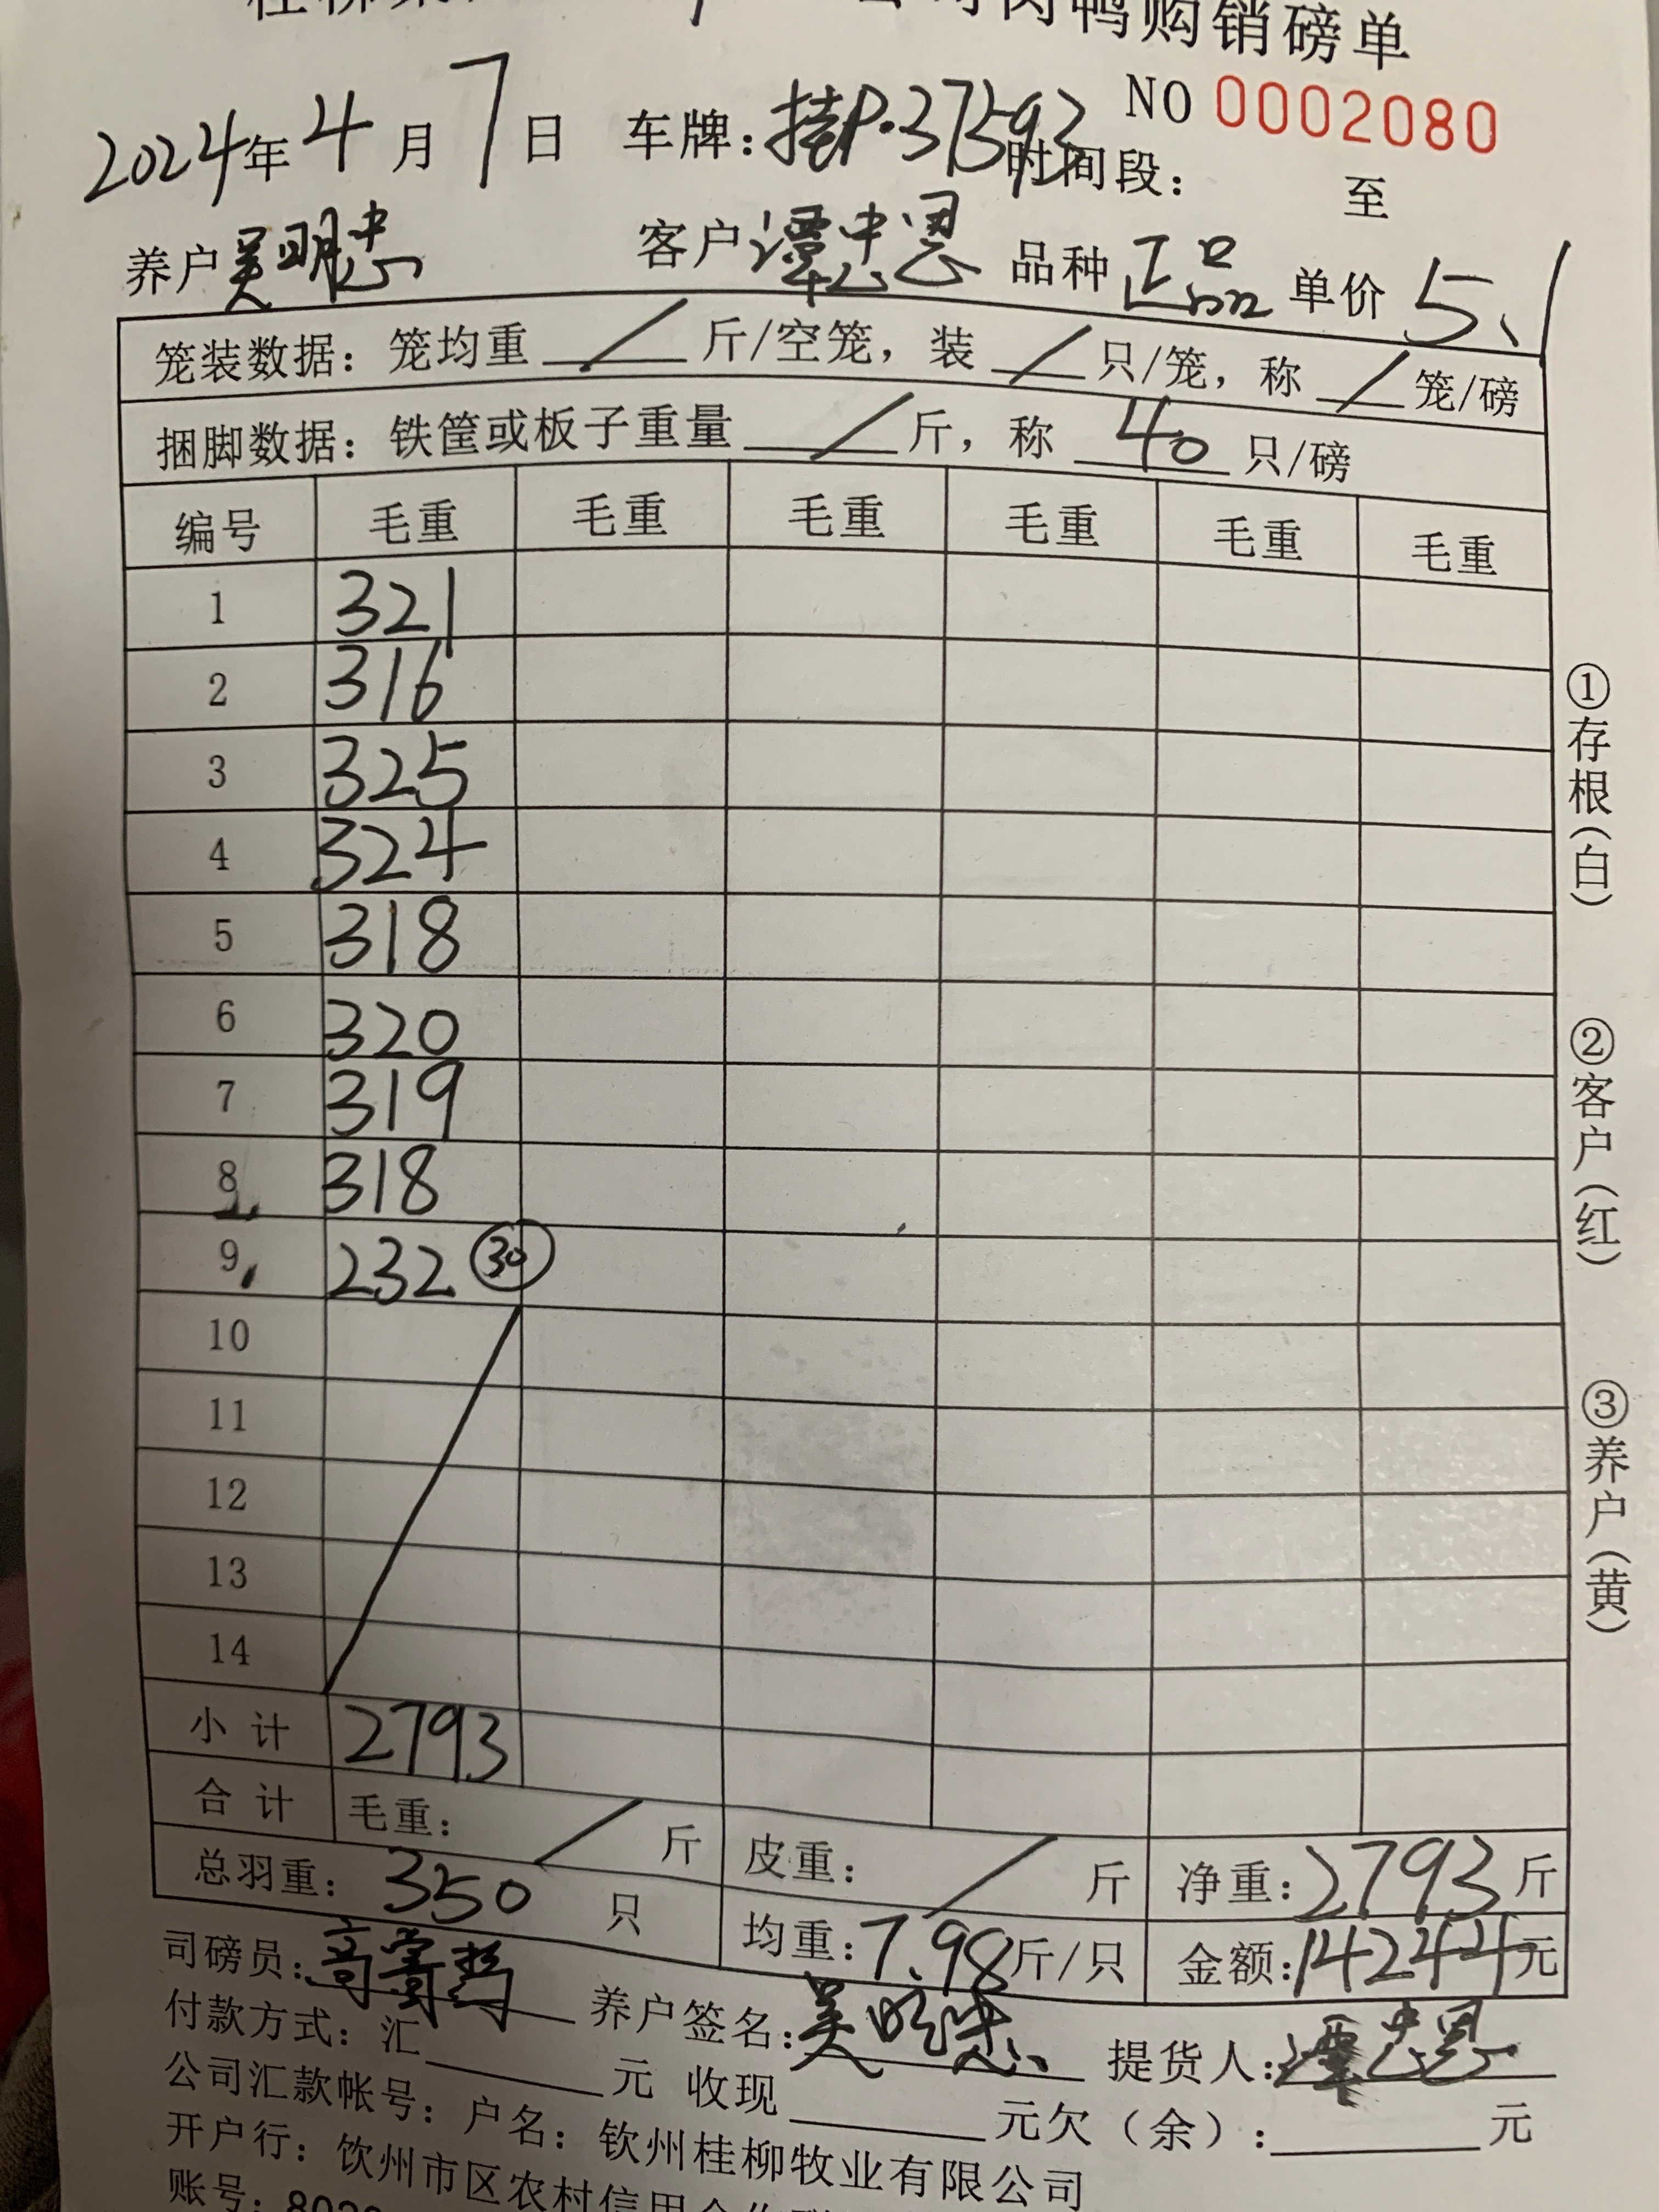 肉鸭购销磅单
NO 0002080
2024年4月7日 车牌:桂P·37593 时间段: 至
养户吴明忠 客户谭忠恩 品种正品 单价5.1
笼装数据:笼均重/斤/空笼,装/只/笼,称/笼/磅
捆脚数据:铁筐或板子重量/斤,称40只/磅
编号 毛重 毛重 毛重 毛重 毛重 毛重
1 321
2 316
3 325
4 324
5 318
6 320
7 319
8 318
9 232 ㉚
10
11
12
13
14
小计 2793
合计 毛重:/斤 皮重:/斤 净重:2793斤
总羽重:350只 均重:7.98斤/只 金额:14244元
司磅员: 养户签名:吴明忠 提货人:谭忠恩
付款方式:汇 元 收现 元欠(余): 元
公司汇款帐号:户名:钦州桂柳牧业有限公司
开户行:钦州市区农村信用合作
账号:
①存根(白)
②客户(红)
③养户(黄)